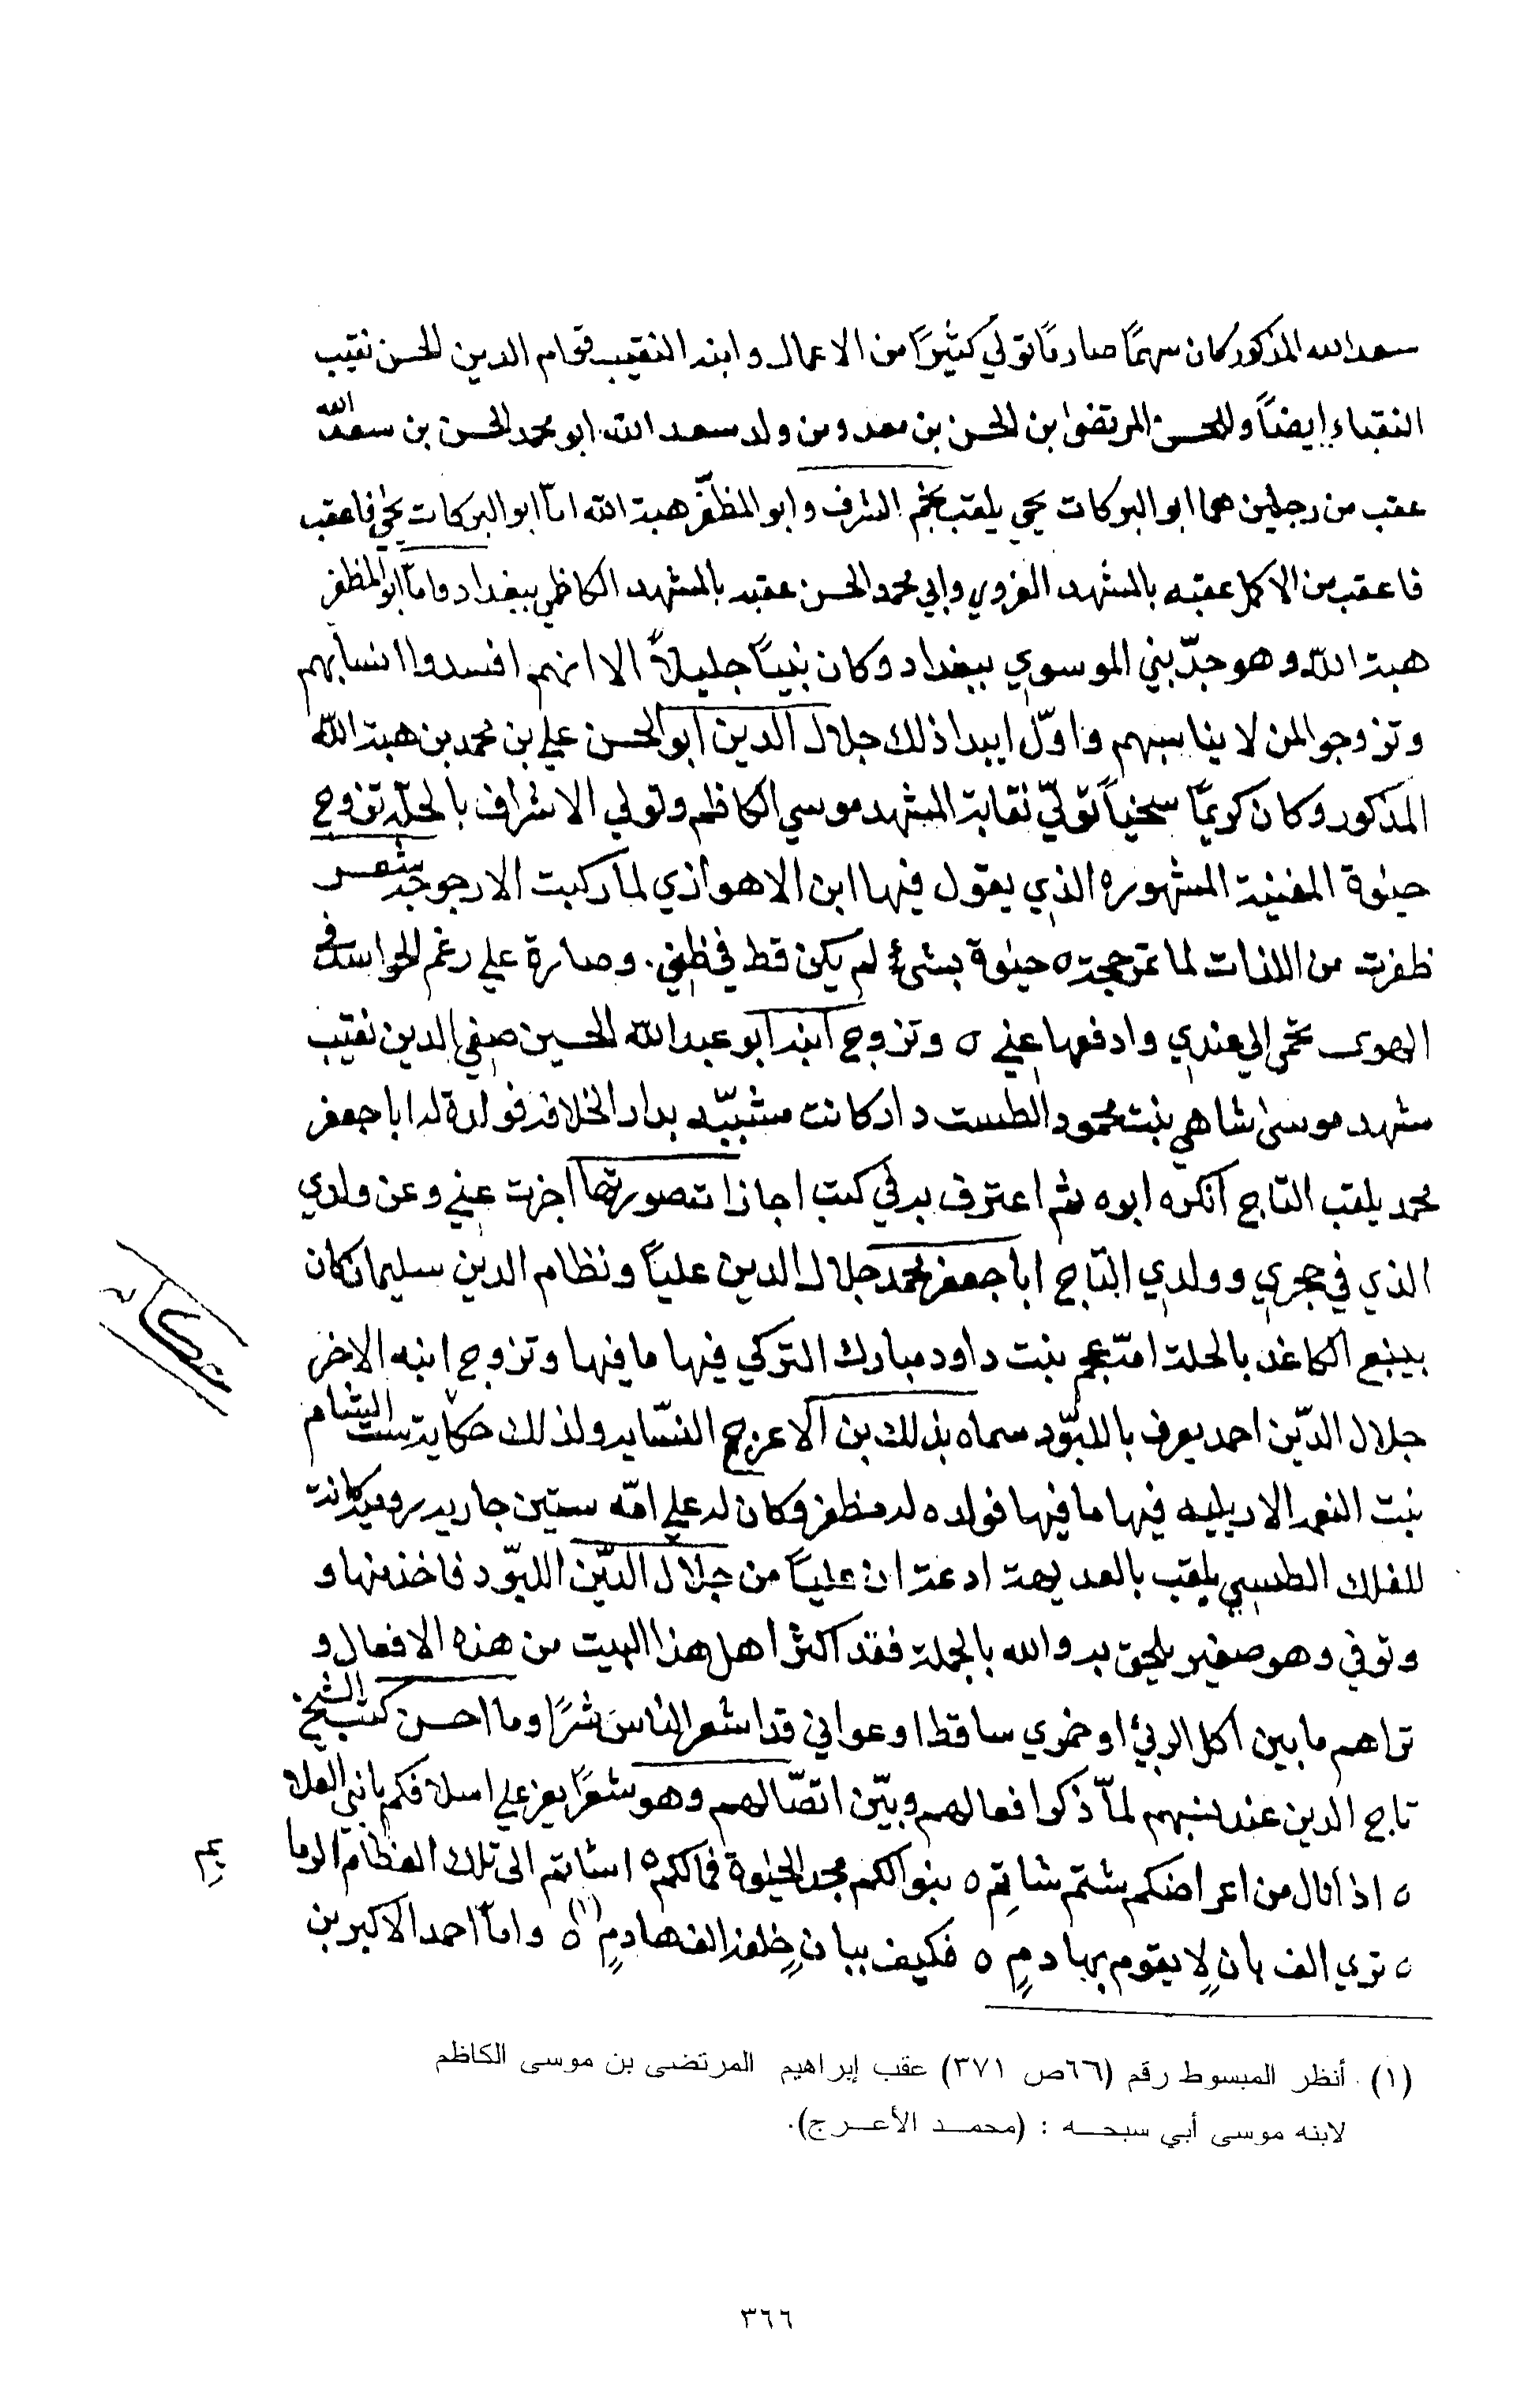 سعد الله المذكور كان سهمًا صارمًا تولي كثيرًا من الاعمال وابنه النقيب قوام الدين الحسن نقيب
النقباء إيضاً وللحسن المرتضى بن الحسن بن معد ومن ولد سعد الله ابو محمد الحسن بن سعد الله
عقب من رجلين هما ابو البركات يحيي يلقب نجم الشرف وابو المظفّر هبة الله امّا ابو البركات يحيي فاعقب
فاعقب من الاكمل عقبه بالمشهد الغروي وابي محمد الحسن عقبه بالمشهد الكاظمي ببغداد واماّ ابو المظفر
هبة الله وهو جدّ بني الموسوي ببغداد وكان بنيتاً جليلاً الا انهم افسدوا انسابهم
وتزوجوا لمن لا يناسبهم واوّل ابيدا ذلك جلال الدين ابو الحسن علي بن محمد بن هبة الله
المذكور وكان كريمًا سخياً توليّ نقابة المشهد موسي الكاظم وتولي الاشراف بالحلّه تزوج
حيٰوة المغنية المشهوره الذي يقول فيها ابن الاهوازي لما ركبت الارجوجه شعر
ظفرت من اللذات لما ترجحة ه حيٰوة بشئ لم يكن قط في ظني . وصارة علي رغم الحواسد في
الهوى تجي الي عندي وادفعها عني ه وتزوج ابنه ابو عبد الله الحسين صفي الدين نقيب
مشهد موسىٰ شاهي بنت محمود الطست دار كانت مشببّه بدار الخلافة فولدة له ابا جعفر
محمد يلقب التاج انكره ابوه ثم اعترف به في كتب اجازات صورتها اجزت عني وعن ولدي
الذي في حجري وولدي التاج ابا جعفر محمد جلال الدين علياً ونظام الدين سليمان كان
يبيع الكاغد بالحلة امّه عجم بنت داود مبارك التركي فيها ما فيها وتزوج ابنه الاخر
جلال الدّين احمد يعرف باللبّود سماه بذلك بن الاعرج النسّابه ولذلك حكاية ست الشام
بنت النعمر الاربليه فيها ما فيها فولده له مظفر وكان له علي امّه ستين جاريه روميه كانت
للفلك الطبسي يلقب بالعديهة ادعة ان علياً من جلال الدّين اللبّود فاخذ منها و
وتوفي وهو صغير يلحق به والله بالجملة فقد اكثر اهل هذا البيت من هذه الافعال و
تراهم ما بين اكل الربئ او خمري ساقط او عواني قد اشعر الناسَ شرًا وما احسن كتب الشيخ
تاج الدين عند نسبهم لماّ ذكر افعالهم وبيّن اتصّالهم وهو شعرًا يعز علي اسلافكم يا بني العلا
ه اذا نال من اعراضكم شتم شاتِم ه بنوا لكم مجد الحيٰوة فما لكم ه اسأتم الى تلك العظام الرما يم
ه تري الف بانٍ لا يقوم بهادمٍ ه فكيف ببانٍ خلفه الف هادمٍ (١) ه واماّ احمد الاكبر بن
(١) . أنظر المبسوط رقم (٦٦ص ٣٧١) عقب إبراهيم المرتضى بن موسى الكاظم
لابنه موسى أبي سبحه : (محمد الأعرج).
٣٦٦